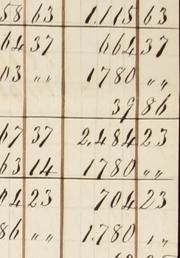 58 63 1.115 63
64 37 664 37
03 " " 1780 " "
39 86
67 37 2.484 23
63 14 1780 " "
04 23 704 23
86 " " 1.780 " "